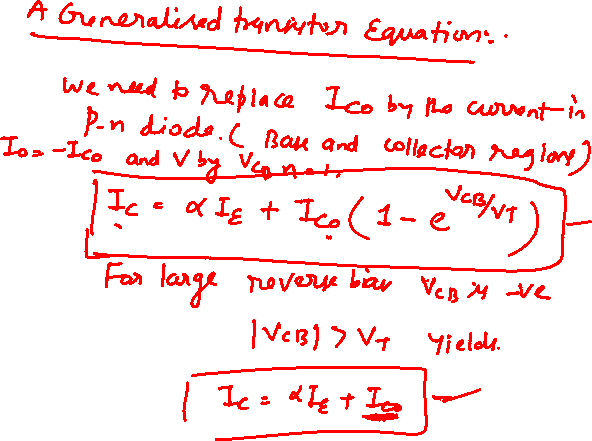 A Generalised transistor Equation:.
We need to replace Ico by the current in
P-n diode. ( Base and collector regions)
Io = -Ico and V by VCB
Ic = αIE + Ico ( 1 - e^VCB/VT )
For large reverse bias VCB is -ve
|VCB| > VT yields.
Ic = αIE + Ico